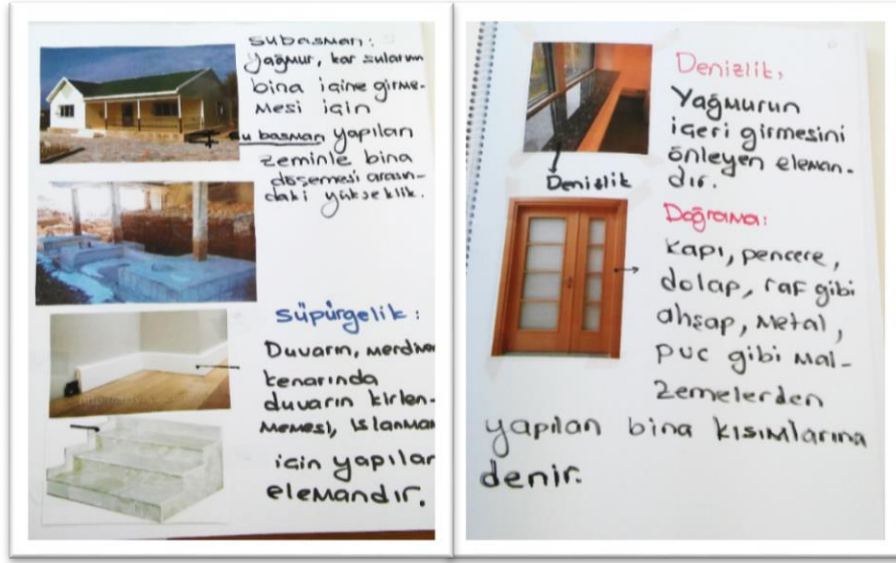 Subasman:
Yağmur, kar sularının
bina içine girme-
mesi için
su basman yapılan
zeminle bina
döşemesi arasın-
daki yükseklik.
Süpürgelik:
Duvarın, merdiven
kenarında
duvarın kirlen-
memesi, ıslanmam
için yapılan
elemandır.
Denizlik,
Yağmurun
içeri girmesini
önleyen eleman-
dır.
Denizlik
Doğrama:
Kapı, pencere,
dolap, raf gibi
ahşap, metal,
pvc gibi mal-
zemelerden
yapılan bina kısımlarına
denir.